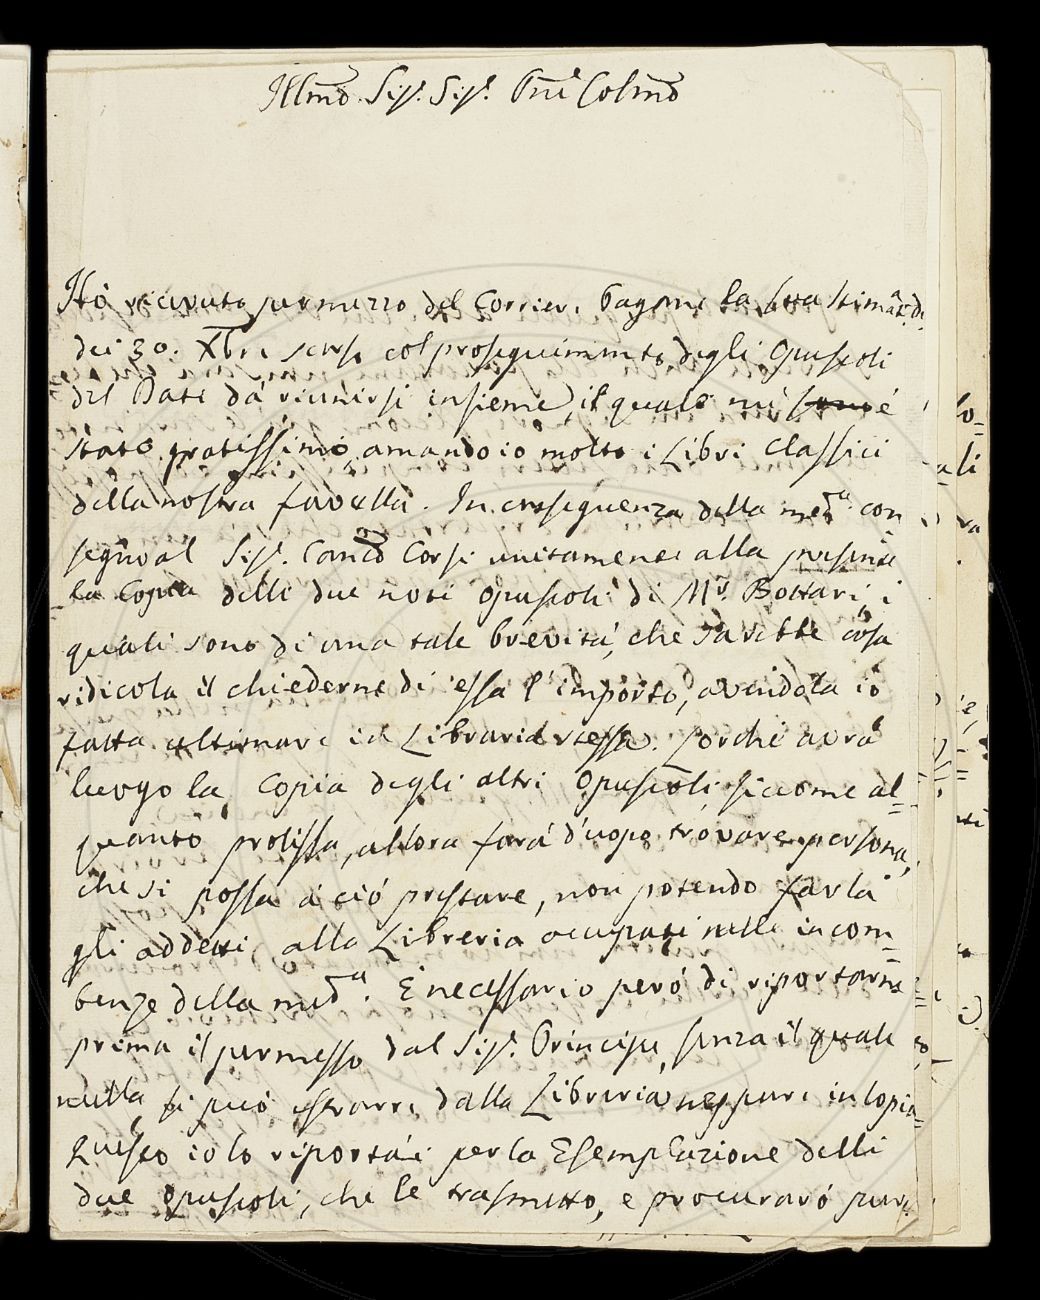 Illmo Sigr. Sigr. Pne Colmo
Hò ricevuta per mezzo del Corrier Pagani la sua stimatma
dei 30. Xbre scorso col proseguimento degli Opuscoli
del Dati dà riunirsi insieme, il quale mi sono é
stato gratissimo, amando io molto i Libri Classici
della nostra favella. In consequenza della meda con
segno al Sigr. Canco Corsi unitamente alla presente
la Copia delli due noti Opuscoli di Mr. Bottari, i
quali sono di una tale brevitá, che sarebbe cosa
ridicola il chiederne di essa l'importo, avendola io
fatta ultimare in Libraria stessa. Lorchè avrà
luogo la Copia degli altri Opuscoli, siccome al=
quanto prolissa, allora fará d'uopo trovare persona,
che si possa á ció prestare, non potendo farla
gli addetti alla Libreria occupati nelle incom=
benze della meda. É necessario peró di riportarne
prima il permesso dal Sigr. Principe, senza il quale
nulla si puó estrarre dalla Libreria neppure in Copia=
Questo io lo riportái per la Esemplazione delli
due Opuscoli, che le trasmetto, e procuraró pure